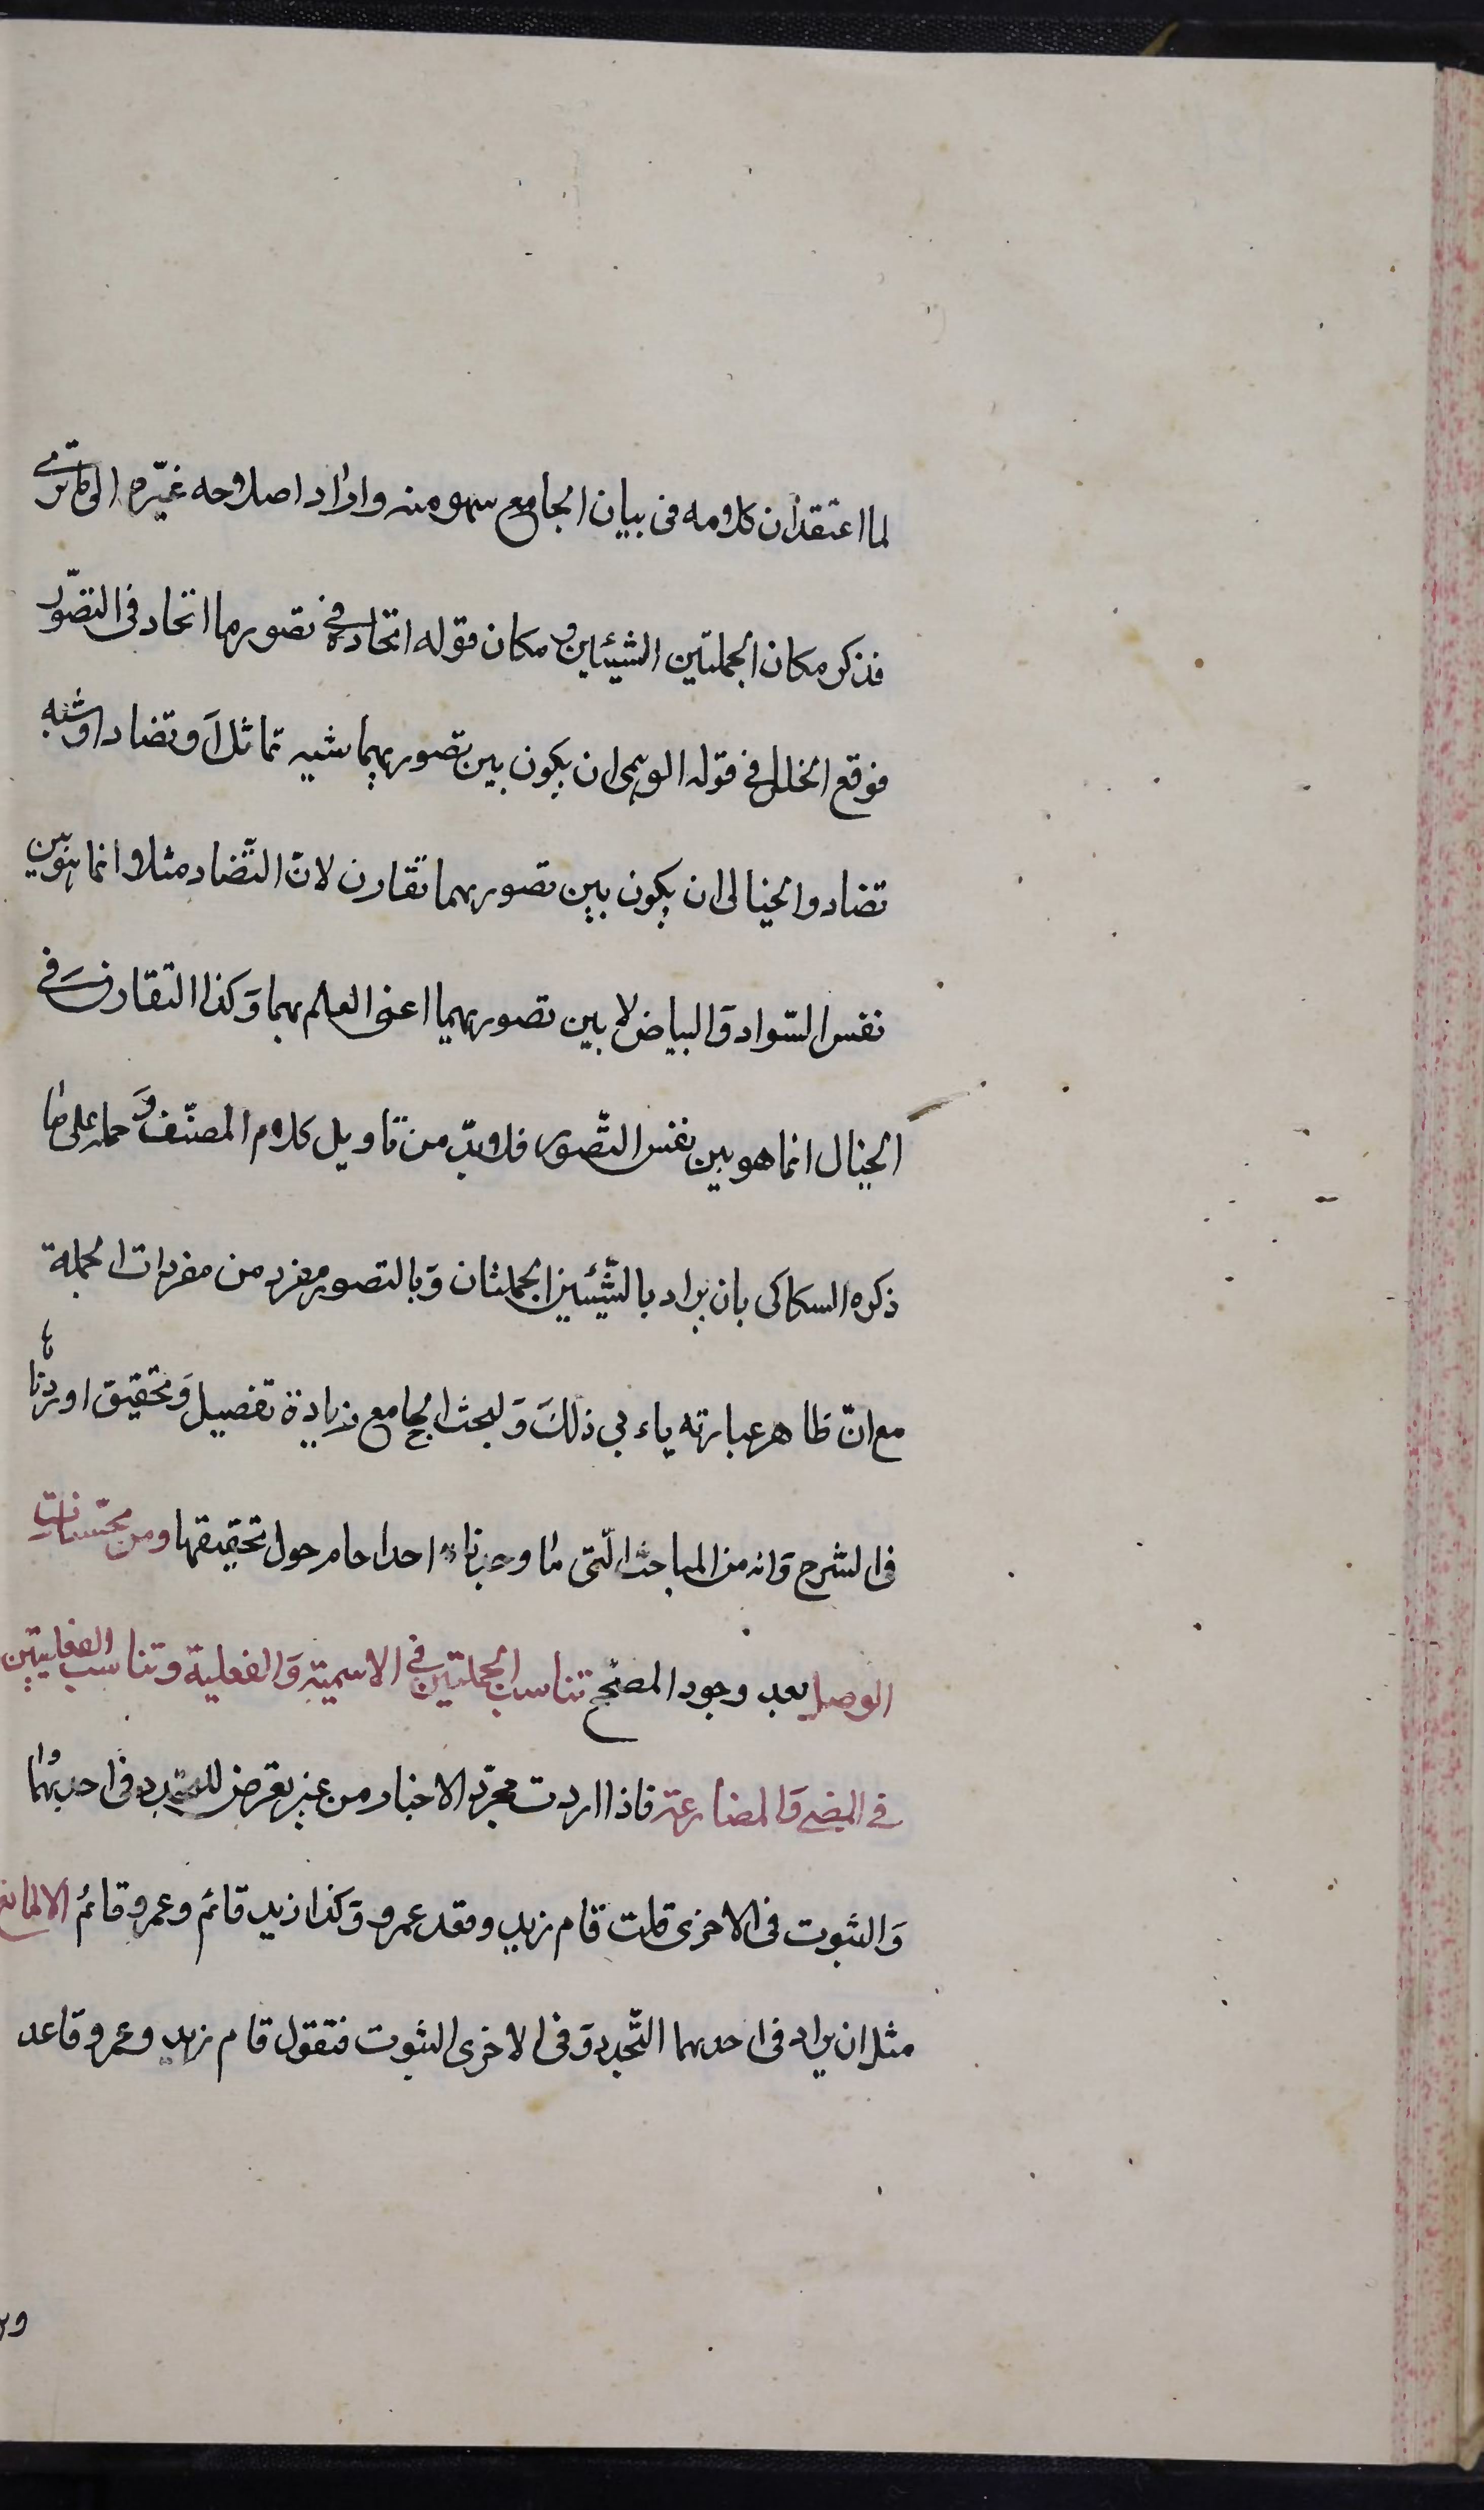 لما اعتقد ان كلامه فى بيان الجامع سهو منه واراد اصلاحه غيّره الى ما ترى
فذكر مكان الجملتين الشيئين ومكان قوله اتحاد فى تصور ما اتحاد فى التصوّر
فوقع الخلل فى قوله الوهمى ان يكون بين تصوريهما شبه تماثل اَو تضاد او شبه
تضاد والخيالى ان يكون بين تصوريهما تقارن لانّ التّضاد مثلا انما هو بين
نفس السّواد وَالبياض لا بين تصوريهما اعنى العلم بهما وَكذا التقارن فى
الخيال انما هو بين نفس التّصور فلا بدّ من تاويل كلام المصنّف وَحمله على ما
ذكره السكاكى بان يراد بالشّيئين الجملتان وَبالتصور مفرد من مفردات الجملة
مع انّ ظاهر عبارته ياءبى ذلكَ وَلبحث الجامع زيادة تفصيل وَتحقيق اوردناها
فى الشرح وَانه من المباحث الّتى ما وجدنا احدا حام حول تحقيقها ومن محسّنات
الوصل بعد وجود المصحّح تناسب الجملتين فى الاسمية وَالفعلية وتناسب الفعليتين
فى المضى وَالمضارعة فاذا اردت مجرّد الاخبار من غير تعرض للتجدد فى احديهما
وَالثبوت فى الاخرى قلت قام زيد وقعد عمرو وَكذا زيد قائم وعمرو قائم الا لمانع
مثل ان يراد فى احديهما التّجدد وَفى الاخرى الثبوت فتقول قام زيد وعمرو قاعد